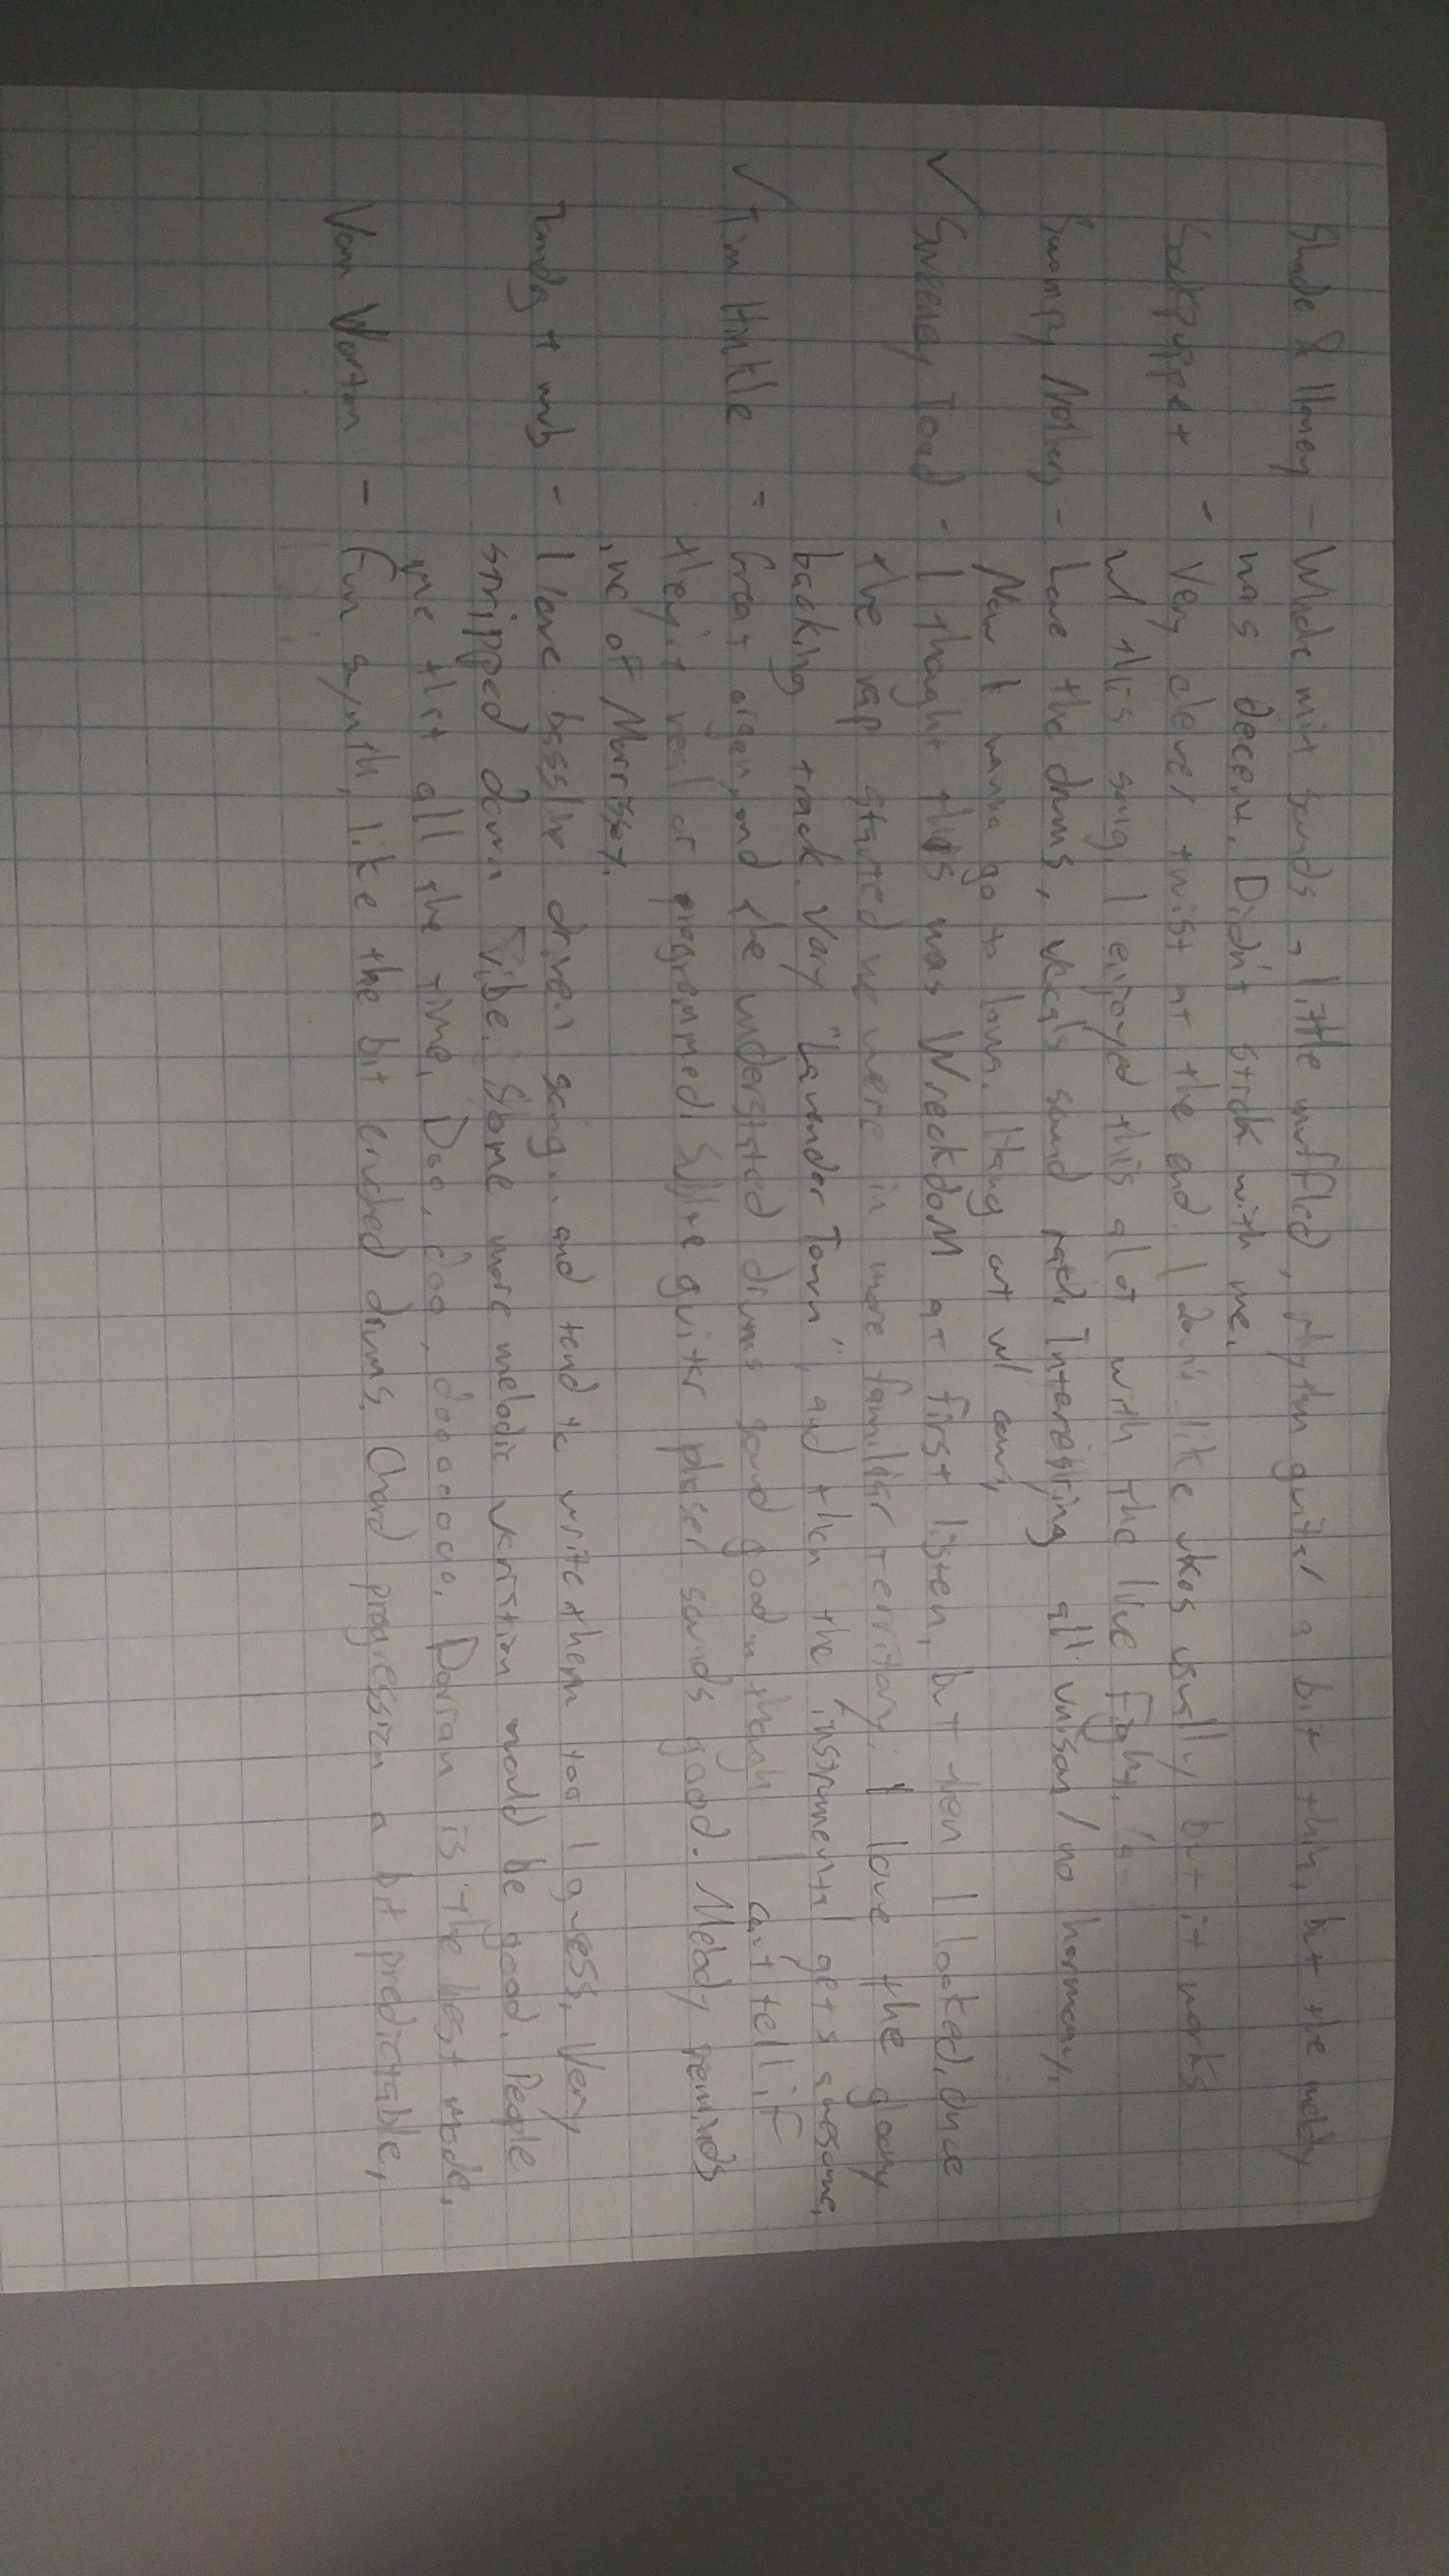 & Honey - Whole mix sounds a little muffled, rhythm guitar a bit thin, but the melody
was decent. Didn't stick with me.
Sockpuppet - Very clever twist at the end. I don't like ukes usually but it works
w/ this song. I enjoyed this alot with the live
Swampy - Love the drums, vocals sound rad. Interesting all unison / no harmony.
Now I wanna go to Hang out w/
✓ Sweeney Toad - I thought this was WreckdoM at first listen, but then I looked, once
the rap started we were in more familiar territory. I love the goony
backing track. Very "Lavender Town", and then the instrumental gets awesome.
✓ Tim Hinkle - Great organ, and the understated drums sound good in though I can't tell if
they're real or programmed. Subtle guitar phaser sounds good. Melody reminds
me of
+ - I love bassline driven songs.. and tend to write them too I guess. Very
stripped down vibe. Some more melodic variation would be good. People
me that all the time. Doo, doo, doooooo. Dorian is the best mode.
Vom Vorton - Fun synth, like the bit crushed drums. Chord progression a bit predictable,